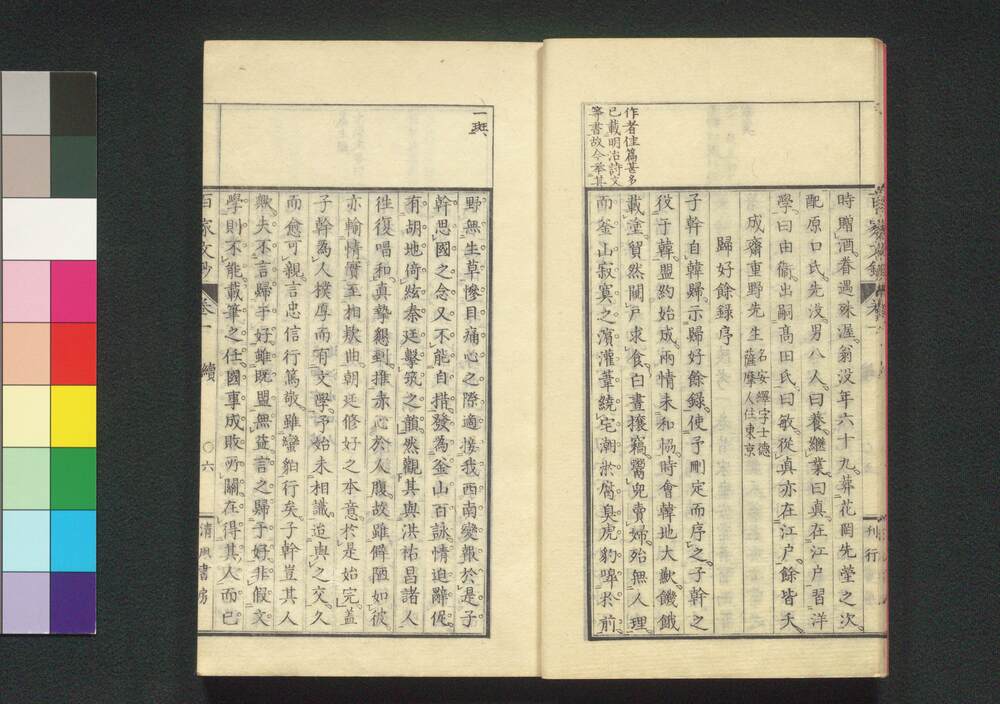 時贈酒。眷遇殊渥。翁沒年六十九。葬花岡先塋之次。
配原口氏。先沒。男八人。曰養。繼業。曰真。在江戶習洋
學。曰由衞。出嗣高田氏。曰敏。從真亦在江戶。餘皆夭。
成齋重野先生 名安繹字士德
薩摩人住東京
歸好餘錄序
子幹自韓歸。示歸好餘錄。使予刪定而序之。子幹之
役于韓。盟約始成。兩情未和協。時會韓地大歉。饑餓
載塗。貿然闖戶求食。白晝攘竊。鬻兒賣婦。殆無人理。
而釜山寂寞之濱。灌葦繞宅。潮淤腐臭。虎豹嘷於前
作者佳篇甚多
已載明治詩文
等書故今舉其
野。無生草。慘目痛心之際。適接我西南變報。於是子
幹思國之念。又不能自措。發為釜山百詠。情迫辭促。
有胡地倚絃。秦廷擊筑之韻。然觀其與洪祐昌諸人
徃復唱和。真摯懇到。推赤心於人腹。故雖僻陋如彼。
亦輸情實。至相欵曲。朝廷修好之本意。於是始完。蓋
子幹為人撲厚而有文學。予始未相識。迨與之交。久
而愈可親。言忠信。行篤敬。雖蠻貊行矣。子幹豈其人
歟。夫不言歸于好。雖既盟無益。言之歸于好。非假文
學則不能。載筆之任。國事成敗所關。在得其人而已
一斑
百家文鈔 卷一 續 ○六 清風書房
刊行